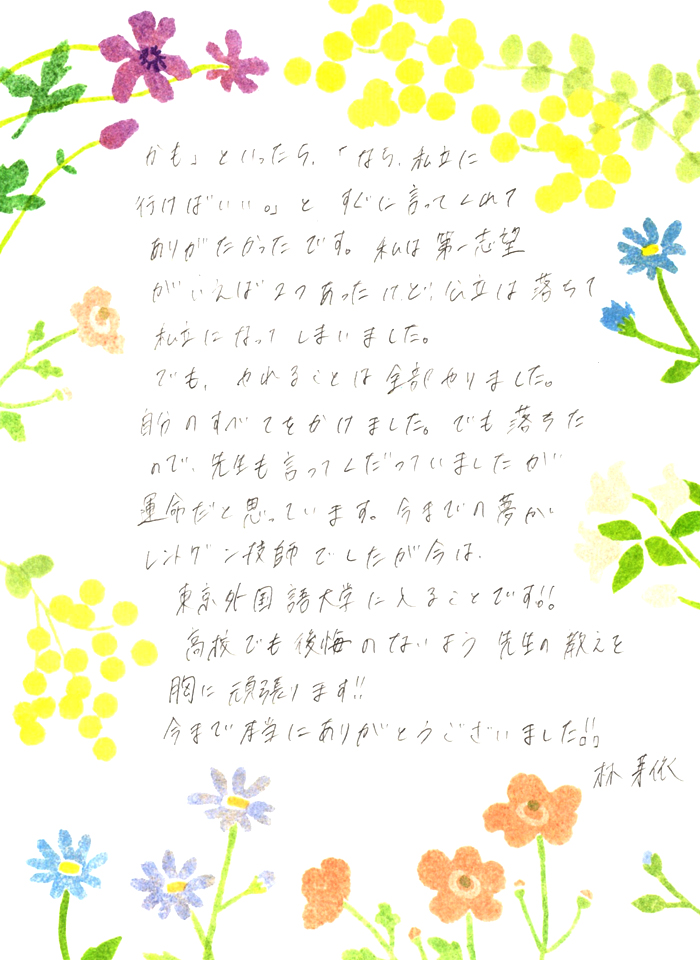 かも」といったら、「なら、私立に
行けばいい。」と すぐに言ってくれて
ありがたかったです。私は第一志望
がいえば2つあったけど、公立は落ちて
私立になってしまいました。
でも、やれることは全部やりました。
自分のすべてをかけました。でも落ちた
ので、先生も言ってくださっていましたが
運命だと思っています。今までの夢が
レントゲン技師でしたが今は、
東京外国語大学に入ることです!!
高校でも後悔のないよう 先生の教えを
胸に 頑張ります!!
今まで本当にありがとうございました!!
林 芽依